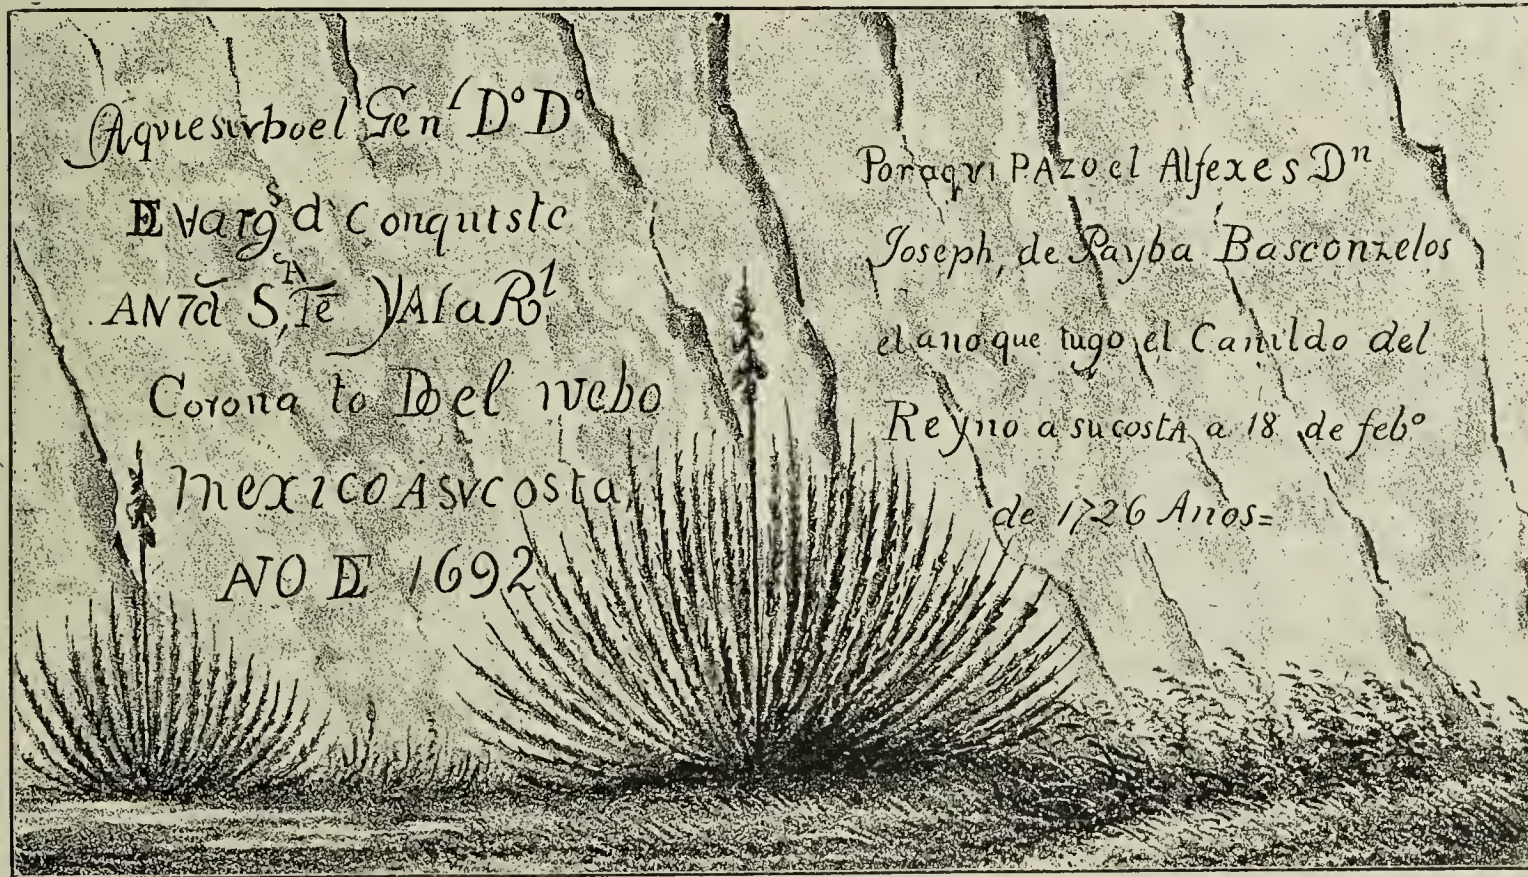 Aquiesurboel Genˡ Dº Dº
DE Vargˢ d' Conquistc
ANTd Sᴬ,Te YAlaRˡ
Corona to Del nuebo
mexico Asucosta
AÑO DE 1692
Poraqui PAzo el Alfexes Dⁿ
Joseph, de Payba Basconzelos
el ano que tugo el Canildo del
Reyno a sucostA a 18 de febº
de 1726 Anos=